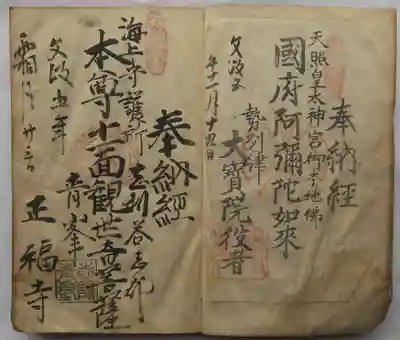 奉納経
天照皇太神宮御本地佛
國府阿彌陀如來
勢州津
大寶院役者
文政五
年十一月十九日
奉納經
海上守護所
志州答志郡
本尊十一面観世音菩薩
青峯
正福寺
文政五年
霜月廿三日